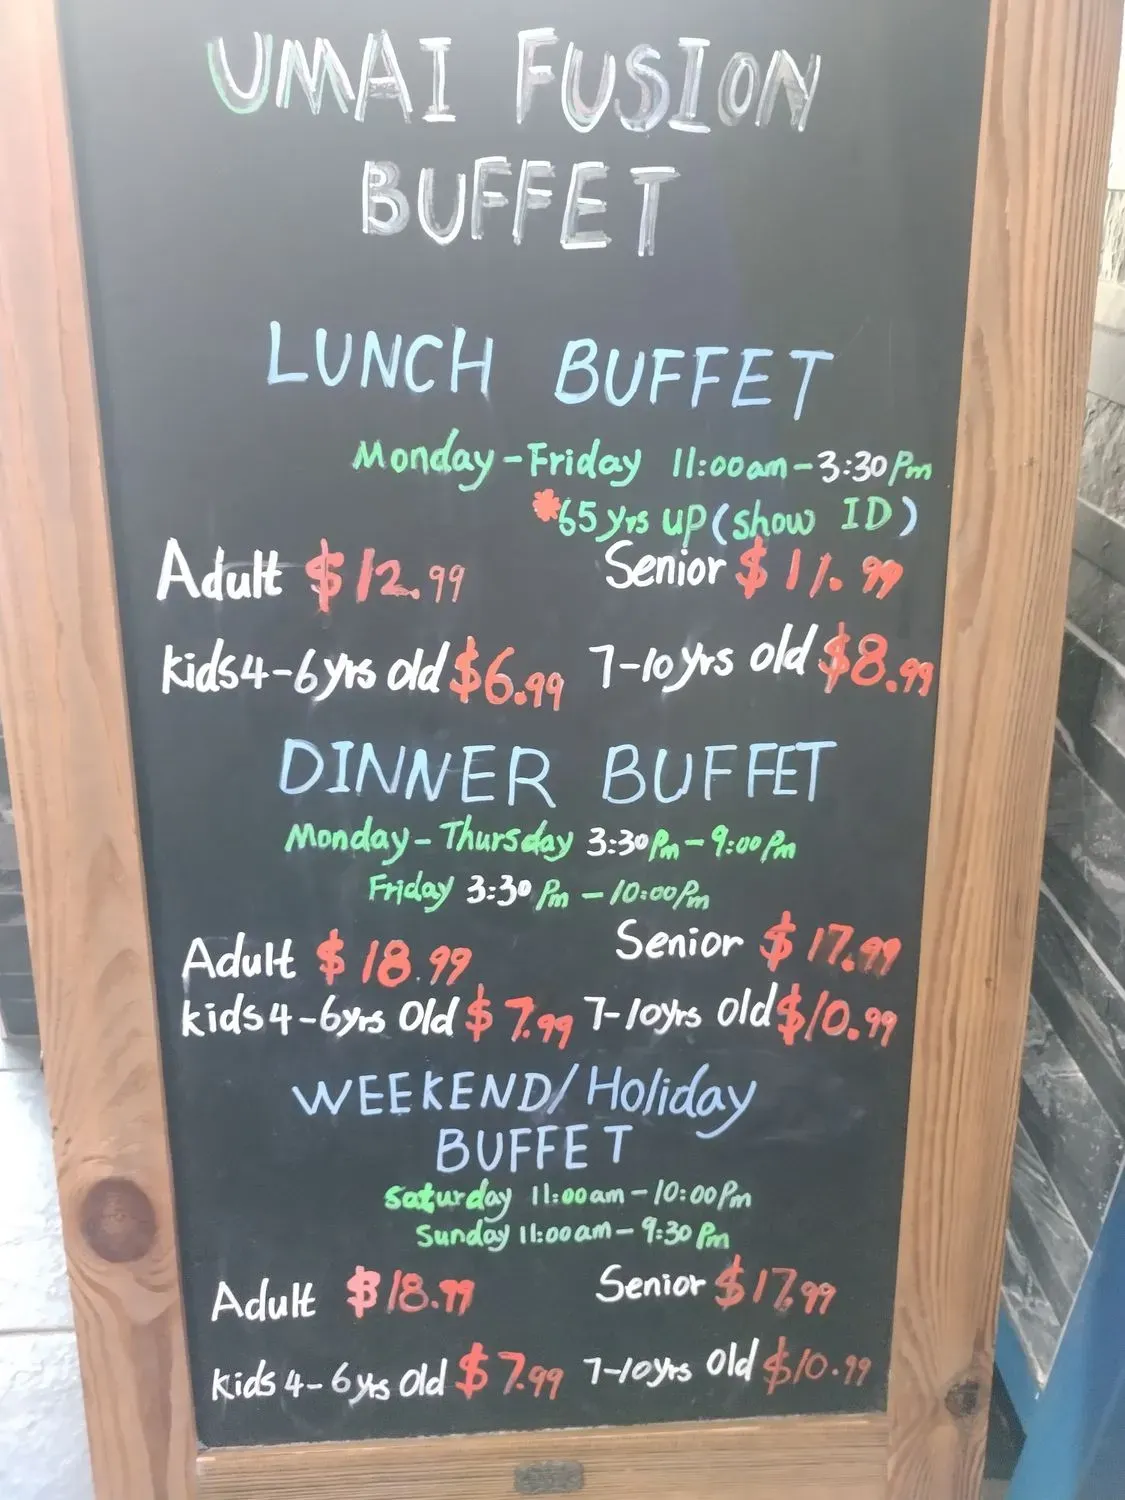 UMAI FUSION
BUFFET
LUNCH BUFFET
Monday-Friday 11:00am-3:30Pm
*65yrs up(show ID)
Adult $12.99 Senior $11.99
kids4-6yrs old $6.99 7-10yrs old $8.99
DINNER BUFFET
Monday-Thursday 3:30Pm-9:00Pm
Friday 3:30Pm-10:00Pm
Adult $18.99 Senior $17.99
kids4-6yrs old $7.99 7-10yrs old $10.99
WEEKEND/Holiday
BUFFET
Saturday 11:00am-10:00Pm
Sunday 11:00am-9:30Pm
Adult $18.99 Senior $17.99
kids 4-6yrs old $7.99 7-10yrs old $10.99